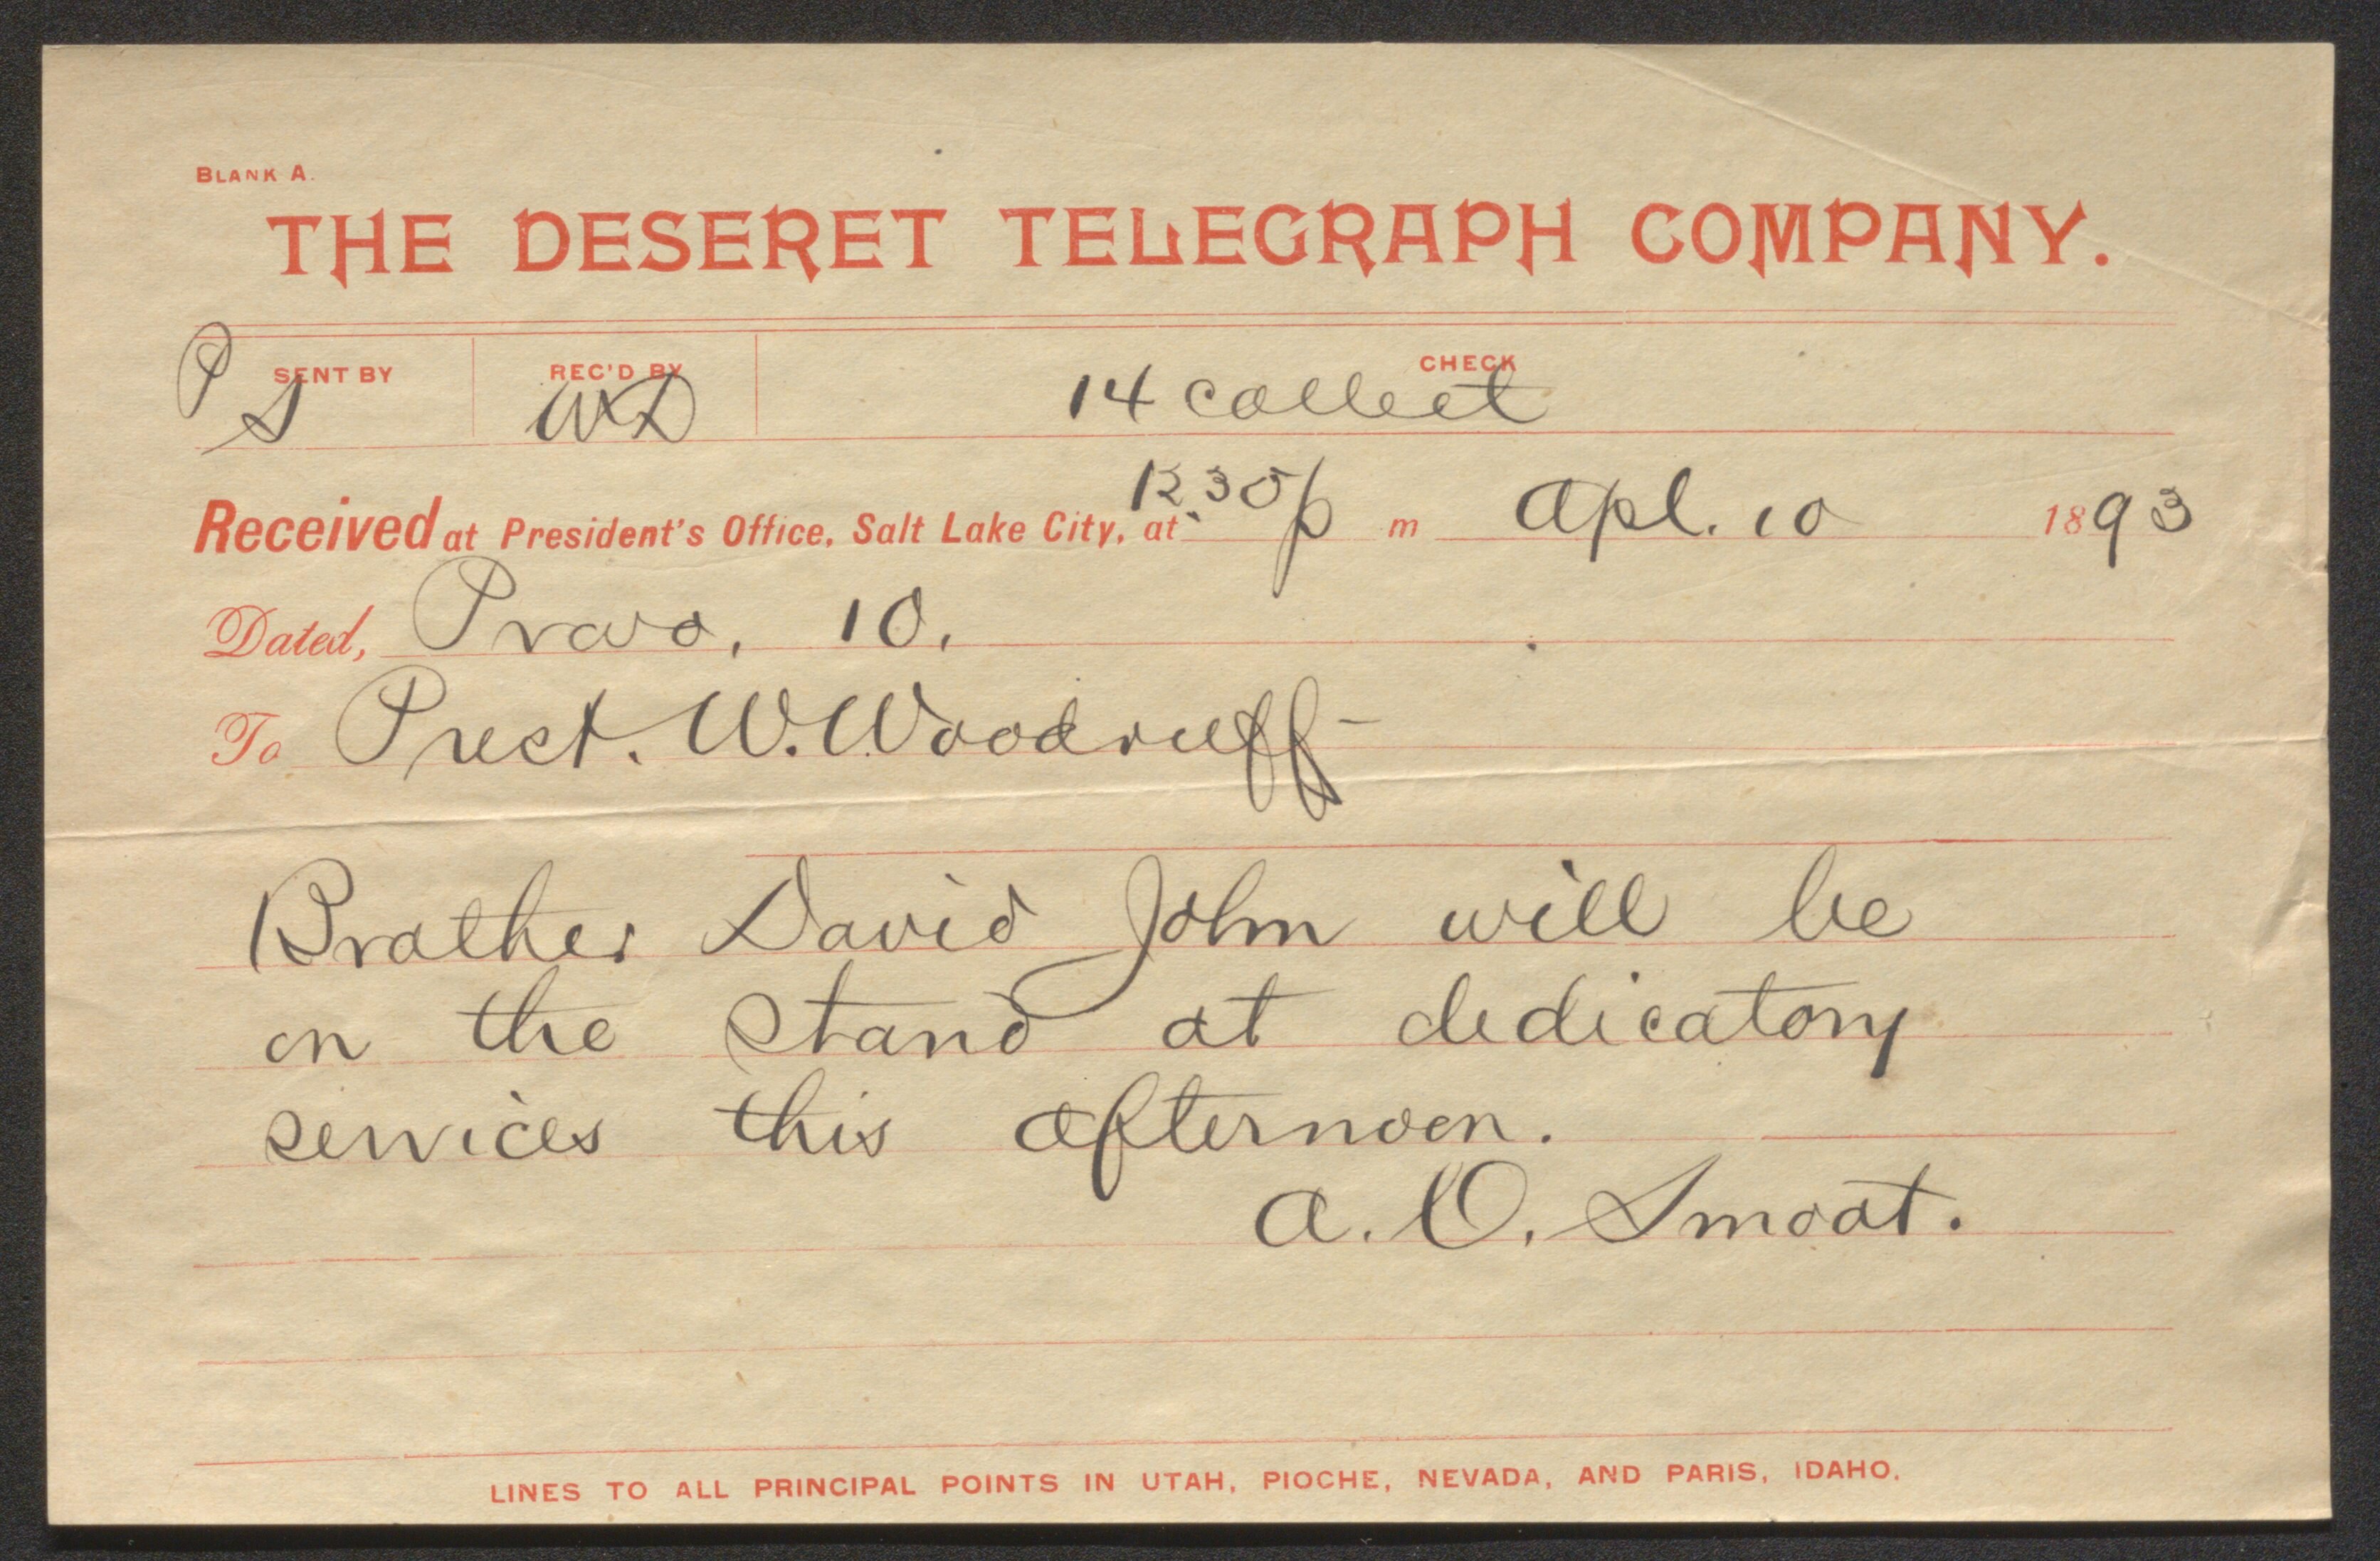 BLANK A.
THE DESERET TELEGRAPH COMPANY.
SENT BY REC'D BY CHECK
P S WD 14 collect
Received at President's Office, Salt Lake City, at 1230 p m Apl. 10 1893
Dated, Provo, 10.
To Prest. W. Woodruff-
Brother David John will be
on the stand at dedicatory
services this afternoon.
A. O. Smoot.
LINES TO ALL PRINCIPAL POINTS IN UTAH, PIOCHE, NEVADA, AND PARIS, IDAHO.